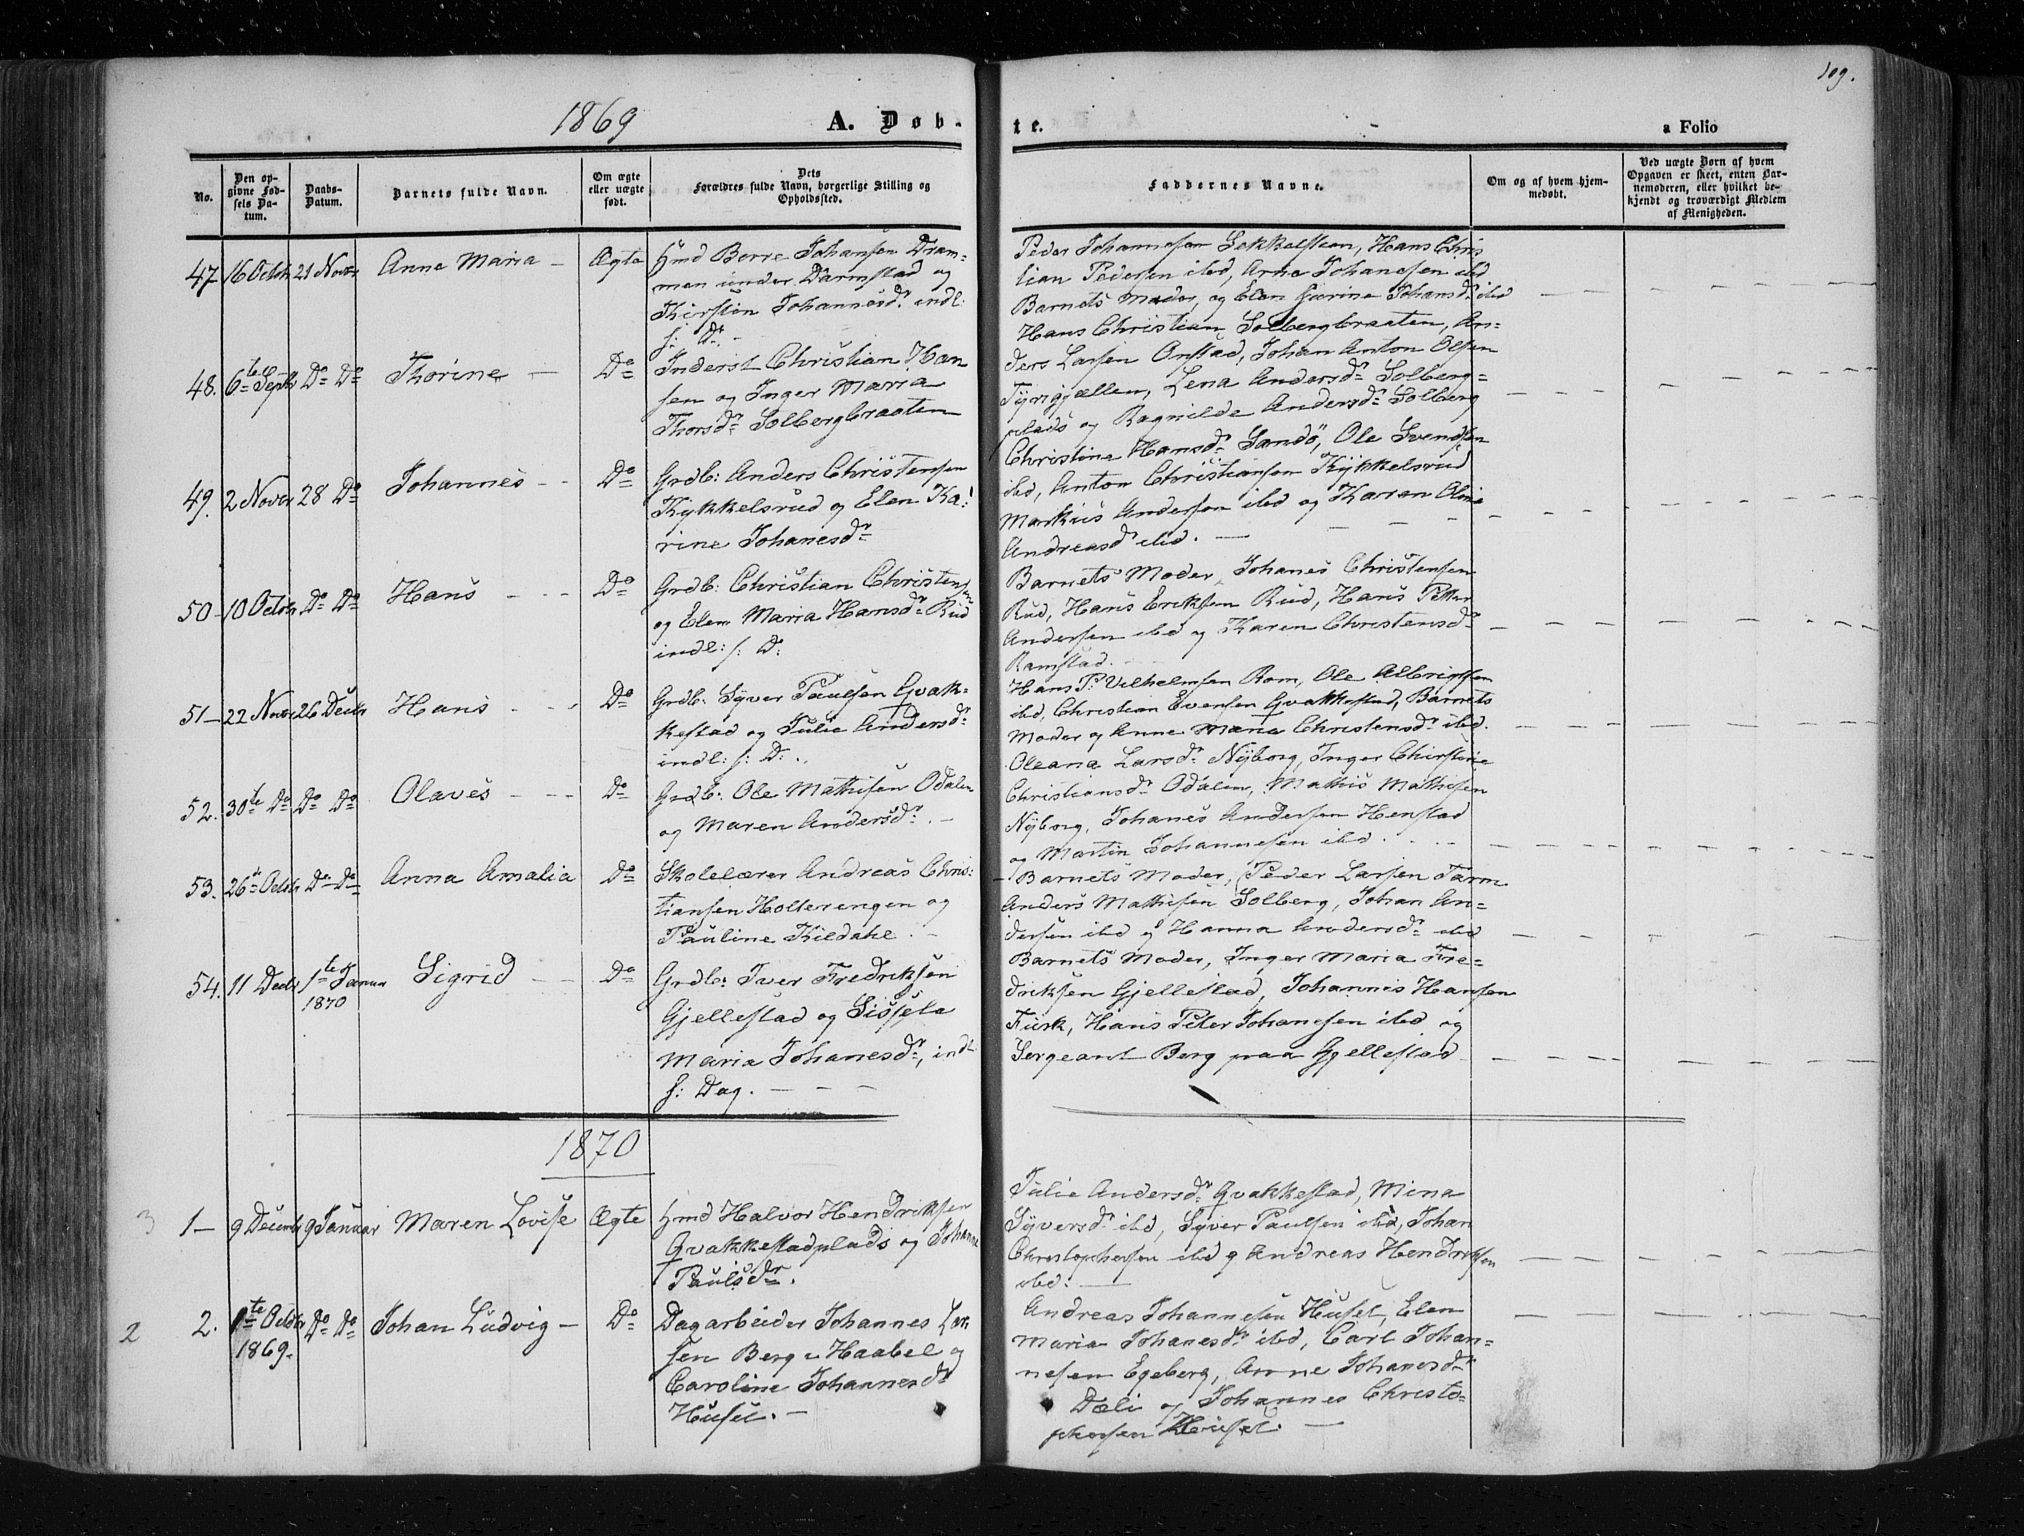 109.
1869
A. Døb-
te.
a Folio
No.
Den op-
givne Fød-
sels Da-
tum.
Daabs-
Datum.
Barnets fulde Navn.
Om ægte
eller uægte
født.
Dets
Forældres fulde Navn, borgerlige Stilling og
Opholdssted.
Faddernes Navne.
Om og af hvem hjem-
medøbt.
Ved uægte Børn af hvem
Opgaven er skeet, enten Bar-
nemoderen, eller hvilket be-
kjendt og troværdigt Medlem
af Menigheden.
47 16 Octbr 21 Novbr Anne Maria - Ægte Hmd Borre Johansen Dram-
men under Darmstad og
Kirstin Johannesdr. indl:
f: D: -
Peder Johannesen Sekkelsteen, Hans Chris
tian Pedersen ibd, Arne Johanesen ibd
Barnets Moder, og Elen Gurine Johansdr ibd
48. 6te Septbr Do Do Thorine - Do Inderst Christian Han
sen og Inger Maria
Thorsdr. Solbergbraaten
Hans Christian Solbergbraaten, An-
ders Larsen Onstad, Johan Anton Olsen
Tyrigjællen, Lena Andersdr Solberg-
plads og Ragnilde Andersdr Solberg
49. 2 Novbr 28 Do Johannes - - Do Grdb: Anders Christensen
Kykkelsrud og Elen Ka-
rine Johanesdr
Christine Hansdr. Sandö, Ole Svendsen
ibd, Anton Christiansen Kykkelsrud
Markus Andersen ibd og Karen Oline
Andreasdr ibd. -
50- 10 Octbr Do Do Hans - - - Do Grdb: Christian Christensen
og Elen Maria Hansdr Rud
indl: f: D:
Barnets Moder, Johanes Christensen
Rud, Hans Eriksen Rud, Hans Petter
Andersen ibd og Karen Christensdr
Ramstad.
51- 22 Novbr 26 Decbr Hans - - - Do Grdb: Syver Paulsen Qvak-
kestad og Julie Andersdr
indl: f: D: .
Hans P: Vilhelmsen Rom, Ole Albrigtsen
ibd, Christian Evensen Qvakkestad, Barnets
Moder og Anne Maria Christensdr ibd.
52. 30te Do Do Do Olaves - - - Do Grdb: Ole Mathisen Odalen
og Maren Andersdr. -
Oleana Larsdr Nyborg, Inger Chirstine
Christiansdr Odalen, Mathis Mathesen
Nyborg, Johanes Andersen Henstad
og Martin Johannesen ibd.
53. 26te Octbr Do Do Anna Amalia Do Skolelærer Andreas Chris-
tiansen Holterengen og
Pauline Kildahl. -
- Barnets Moder, Peder Larsen Tarm
Anders Mathisen Solberg, Johan An-
dersen ibd og Hanna Andersdr ibd
54. 11 Decbr 1te Januar
1870 Sigrid - - Do Grdb: Iver Fredriksen
Gjellestad og Sissela
Maria Johanesdr, indl
f: Dag. - - -
Barnets Moder, Inger Maria Fre-
driksen Gjellestad, Johannes Hansen
Fusk, Hans Peter Johanesen ibd og
Sergeant Berg paa Gjellestad
1870
3 1- 9 Decembr 9 Januar Maren Lovise Ægte Hmd Halvor Hendriksen
Qvakkestadplads og Johanne
Paulsdr.
Julie Andersdr Qvakkestad, Mina
Syversdr ibd, Syver Paulsen ibd, Johan
Christophersen ibd og Andreas Hendriksen
ibd: -
2 2. 1te Octbr
1869. Do Do Johan Ludvig - Do Dagarbeider Johannes Lar
sen Berg i Haabel og
Caroline Johannesdr
Huset. -
Andreas Johannesen Huset, Elen
Maria Johanesdr ibd, Carl Johan-
nesen Egeberg, Anne Johanesdr
Dæli og Johannes Christo-
phersen Huset. -